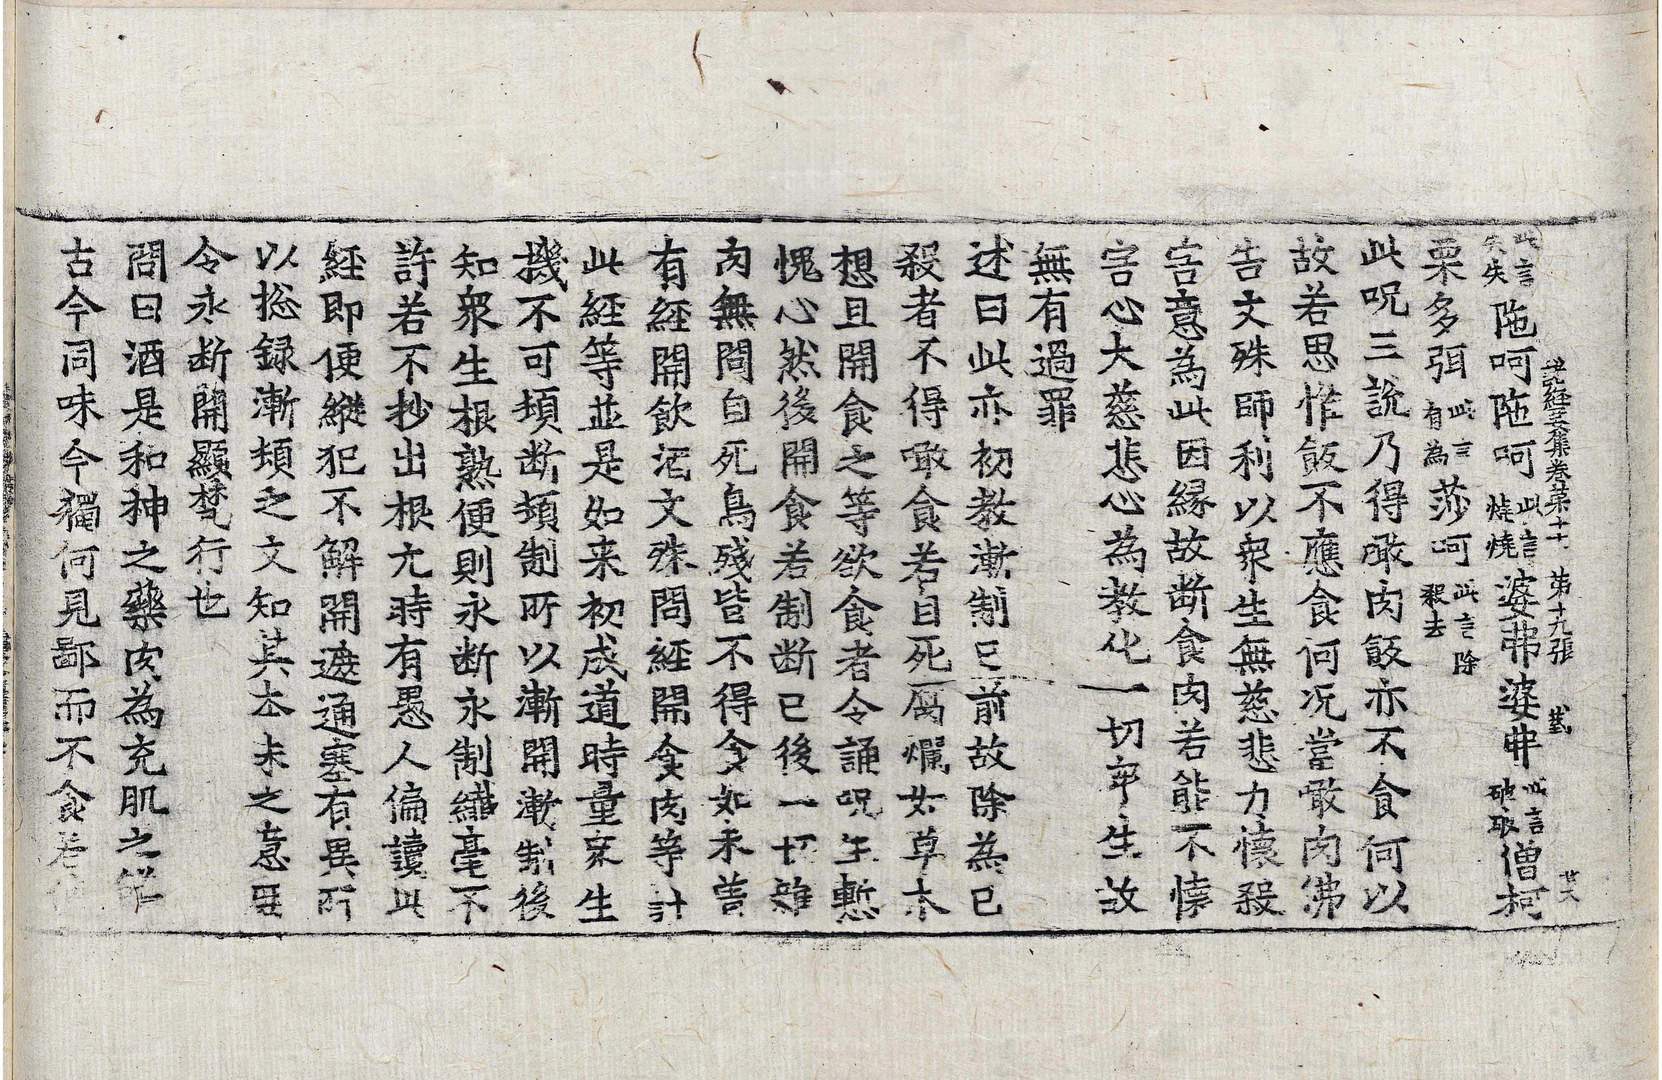 諸經要集卷第十七 第十九張
此言失失陁呵陁呵此言燒燒婆弗婆弗此言破破僧柯
栗多弭此言有為莎呵此言除殺去
此呪三說乃得噉肉飯亦不食何以
故若思惟飯不應食何况當噉肉佛
告文殊師利以衆生無慈悲力懷殺
害意為此因緣故断食肉若能不懷
害心大慈悲心為教化一切衆生故
無有過罪
述曰此亦初教漸制已前故除為己
殺者不得噉食若自死腐爛如草木
想且開食之等欲食者令誦呪生慙
愧心然後開食若制断已後一切雜
肉無問自死鳥殘皆不得食如未曽
有經開飲酒文殊問經開食肉等計
此經等並是如来初成道時量衆生
機不可頓断頓制所以漸開漸制後
知衆生根熟便則永断永制纖毫不
許若不抄出根尤時有愚人偏讀此
經即便縱犯不解開遮通塞有異所
以捴録漸頓之文知其本末之意
令永断開顯梵行也
問曰酒是和神之藥肉為充肌之饍
古今同味今獨何見鄙而不食若